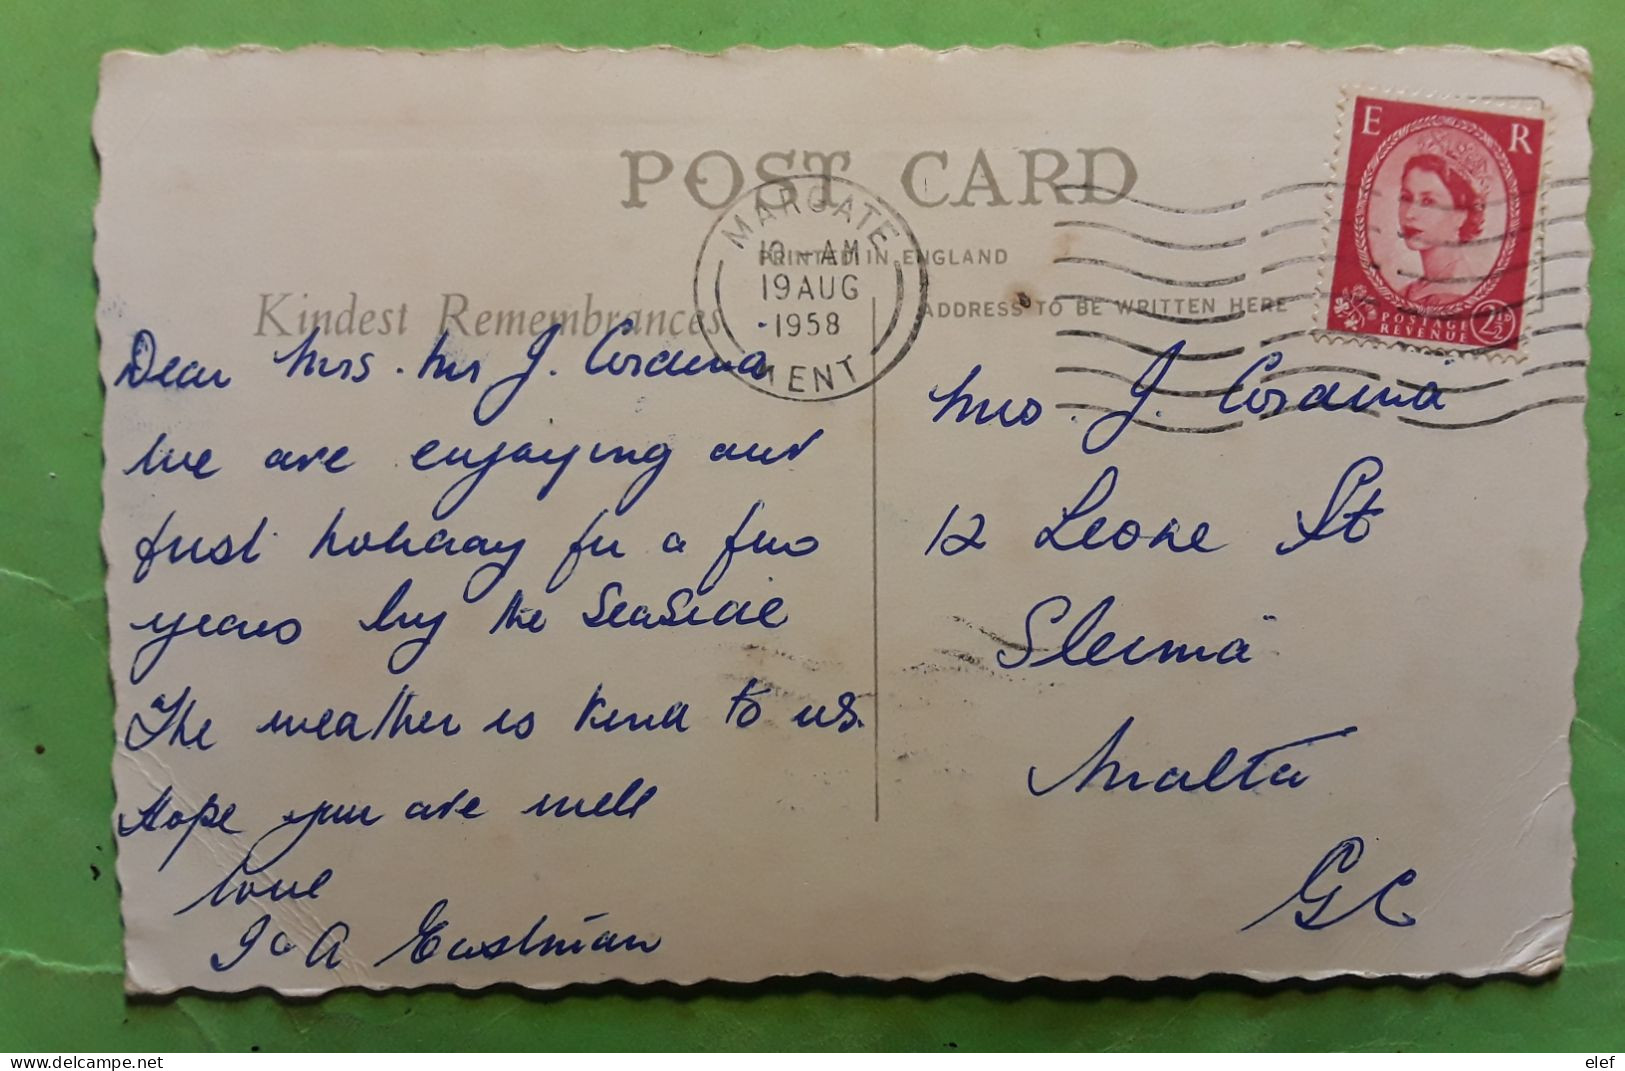 POST CARD
MARGATE
10 - AM
19 AUG
1958
KENT
PRINTED IN ENGLAND
ADDRESS TO BE WRITTEN HERE
E R
POSTAGE
REVENUE
2½D
Kindest Remembrances
Dear Mrs. Mr J. Cordina
We are enjoying our
first holiday for a few
years by the Seaside
The weather is kind to us.
Hope you are well
love
J & A Eastman
Mrs. J. Cordina
12 Leone St
Sleima
Malta
GC
delcampe.net
elef